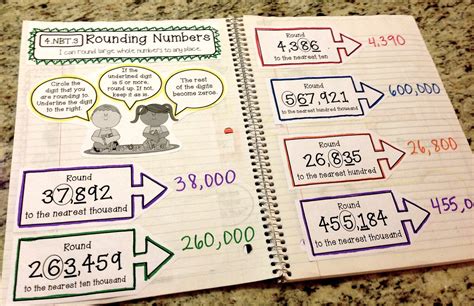 4.NBT.3 Rounding Numbers
I can round large whole numbers to any place.
Circle the digit that you are rounding to. Underline the digit to the right.
If the underlined digit is 5 or more, round up. If not, keep it as is.
The rest of the digits become zeros.
Round
37,892
to the nearest thousand
38,000
Round
263,459
to the nearest ten thousand
260,000
Round
4,386
to the nearest ten
4,390
Round
567,921
to the nearest hundred thousand
600,000
Round
26,835
to the nearest hundred
26,800
Round
455,184
to the nearest thousand
455,0